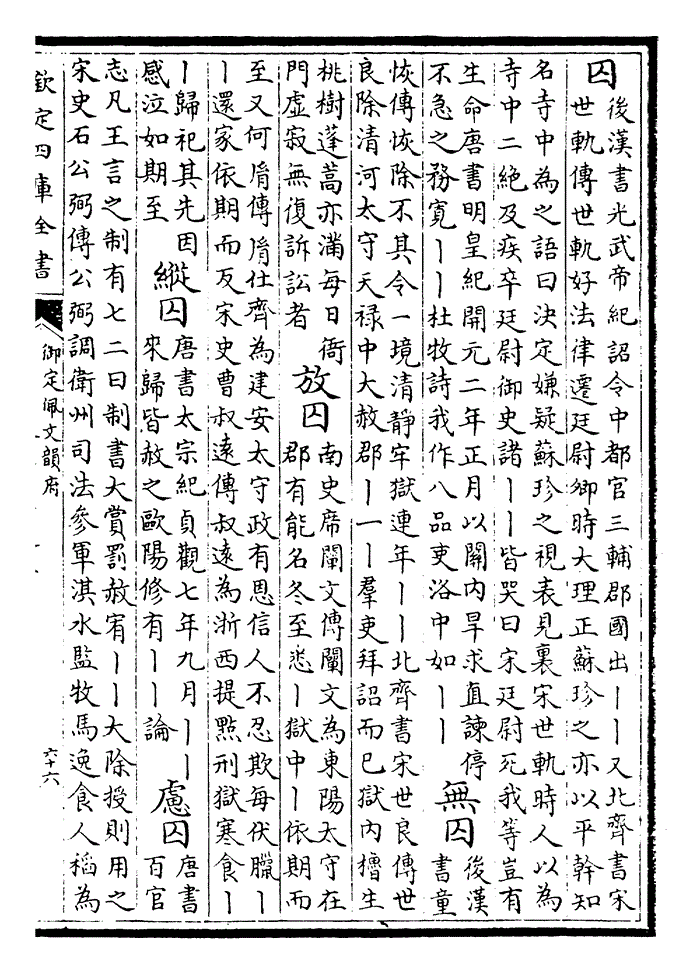 囚
後漢書光武帝紀詔令中都官三輔郡國出丨丨又北齊書宋
世軌傳世軌好法律遷廷尉卿時大理正蘇珍之亦以平幹知
名寺中為之語曰決定嫌疑蘇珍之視表見裏宋世軌時人以為
寺中二絶及疾卒廷尉御史諸丨丨皆哭曰宋廷尉死我等豈有
生命唐書明皇紀開元二年正月以關内旱求直諫停
不急之務寛丨丨杜牧詩我作八品吏洛中如丨丨
無囚
後漢
書童
恢傳恢除不其令一境清靜牢獄連年丨丨北齊書宋世良傳世
良除清河太守天禄中大赦郡丨一丨羣吏拜詔而已獄内穭生
桃樹蓬蒿亦滿每日衙
門虚寂無復訴訟者
放囚
南史席闡文傳闡文為東陽太守在
郡有能名冬至悉丨獄中丨依期而
至又何㣧傳㣧仕齊為建安太守政有恩信人不忍欺每伏臘丨
丨還家依期而反宋史曹叔遠傳叔遠為浙西提點刑獄寒食丨
丨歸祀其先因
感泣如期至
縱囚
唐書太宗紀貞觀七年九月丨丨
來歸皆赦之歐陽修有丨丨論
慮囚
唐書
百官
志凡王言之制有七二曰制書大賞罰赦宥丨丨大除授則用之
宋史石公弼傳公弼調衛州司法參軍淇水監牧馬逸食人稻為
欽定四庫全書
御定佩文韻府
六十六